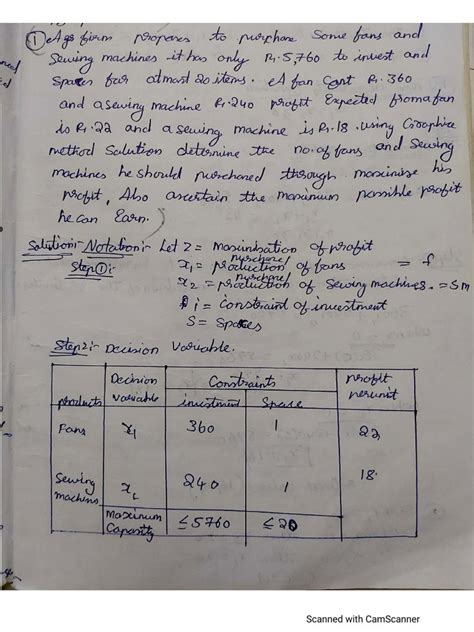 ① A firm proposes to purchase some fans and
Sewing machines it has only Rs. 5,760 to invest and
Spaces for atmost 20 items. A fan Cost Rs. 360
and a sewing machine Rs. 240 profit Expected from a fan
is Rs. 22 and a sewing machine is Rs. 18. using Graphice
method Solution determine the no. of fans and Sewing
machines he should purchased through maximise his
profit, Also ascertain the maximum possible profit
he can Earn.
Solution:- Notation:- Let Z = maximisation of profit
purchase/
Step①:- x₁ = production of fans = f
purchase/
x₂ = production of Sewing machines. = Sm
i = Constraint of investment
S = Spaces
Step 2:- Decision Variable.
products Decision variable Constraints profit per unit
investment Space
Fans x₁ 360 1 22
Sewing machins x₂ 240 1 18
Maximum Capacity ≤5760 ≤20
Scanned with CamScanner